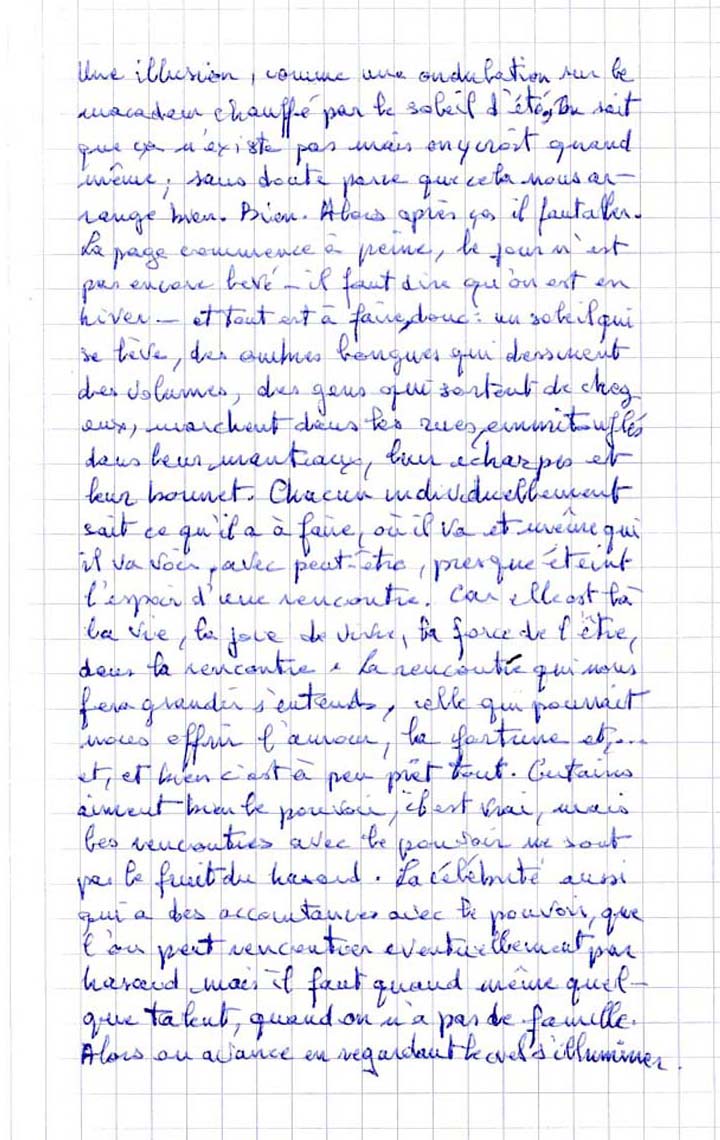 Une illusion, comme une ondulation sur le
macadam chauffé par le soleil d'été, on sait
que ça n'existe pas mais on y croit quand
même ; sans doute parce que cela nous ar-
range bien. Bien. Alors après ça il faut aller.
La page commence à peine, le jour n'est
pas encore levé – il faut dire qu'on est en
hiver – et tout est à faire, donc : un soleil qui
se lève, des ombres longues qui dessinent
des volumes, des gens qui sortent de chez
eux, marchent dans les rues, emmitouflés
dans leur manteaux, leur écharpes et
leur bonnet. Chacun individuellement
sait ce qu'il a à faire, où il va et même qui
il va voir, avec peut-être, presque éteint
l'espoir d'une rencontre. Car elle est là
la vie, la joie de vivre, la force de l'être,
dans la rencontre. La rencontre qui nous
fera grandir s'entends, celle qui pourrait
nous offrir l'amour, la fortune et,...
et, et bien c'est à peu prêt tout. Certains
aiment bien le pouvoir, c'est vrai, mais
les rencontres avec le pouvoir ne sont
pas le fruit du hasard. La célébrité aussi
qui a des accointances avec le pouvoir, que
l'on peut rencontrer eventuellement par
hasard mais il faut quand même quel-
que talent, quand on n'a pas de famille.
Alors on avance en regardant le ciel s'illuminer.